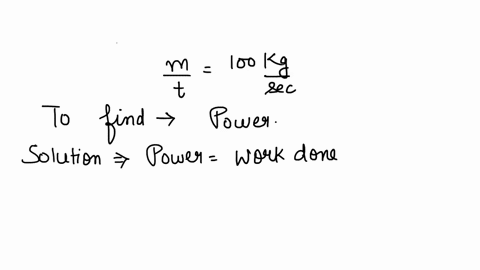 m/t = 100 Kg/sec
To find → Power.
Solution ⇒ Power = work done